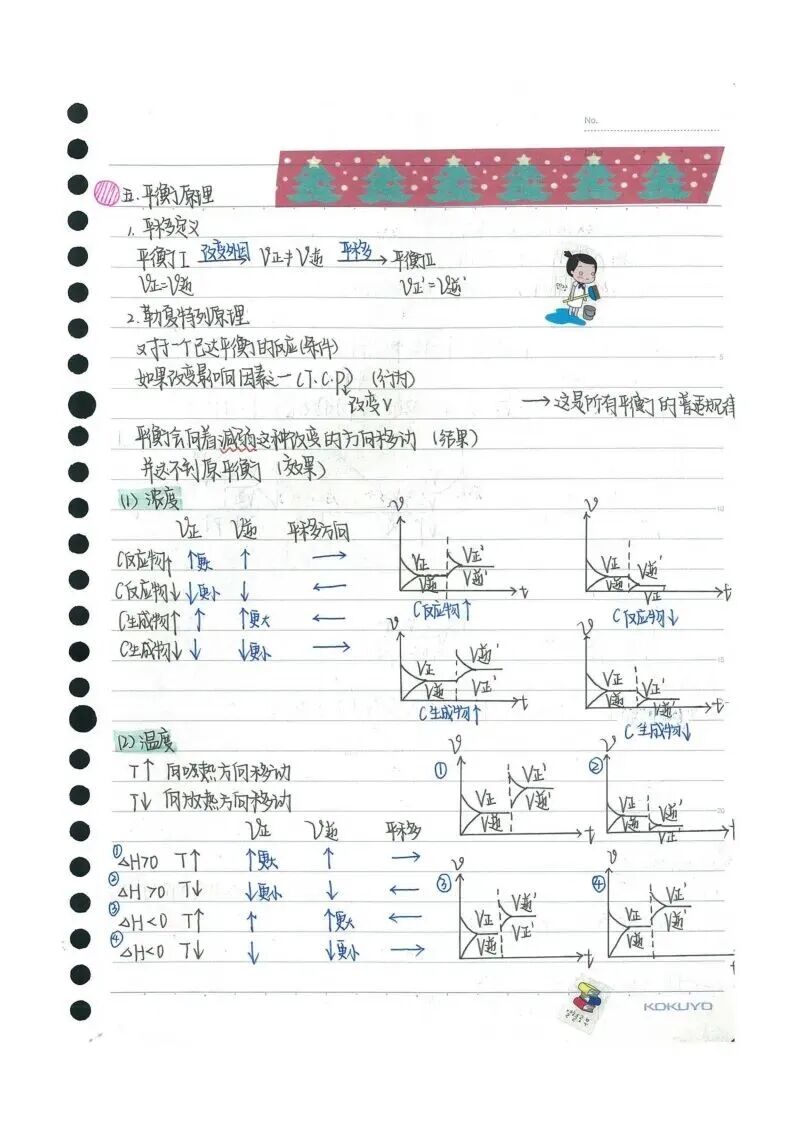 No.
五.平衡原理
1. 平移定义
平衡I 改变外因 V正≠V逆 平移 平衡II
V正=V逆 V正'=V逆'
2.勒夏特列原理
对于一个已达平衡的反应(条件)
如果改变影响因素之一(T.C.P) (行为)
改变V → 这是所有平衡的普适规律
平衡会向着减弱这种改变的方向移动 (结果)
并达不到原平衡 (效果)
(1) 浓度
V正 V逆 平移方向
C反应物↑ ↑更大 ↑ →
C反应物↓ ↓更小 ↓ ←
C生成物↑ ↑ ↑更大 ←
C生成物↓ ↓ ↓更小 →
V V正 V逆 V正' V逆' t
C反应物↑
V V正 V逆 V逆' V正' t
C反应物↓
V V正 V逆 V逆' V正' t
C生成物↑
V V正 V逆 V正' V逆' t
C生成物↓
(2) 温度
T↑ 向吸热方向移动
T↓ 向放热方向移动
V正 V逆 平移
① △H>0 T↑ ↑更大 ↑ →
② △H>0 T↓ ↓更小 ↓ ←
③ △H<0 T↑ ↑ ↑更大 ←
④ △H<0 T↓ ↓ ↓更小 →
① V V正 V逆 V正' V逆' t
② V V正 V逆 V逆' V正' t
③ V V正 V逆 V逆' V正' t
④ V V正 V逆 V正' V逆'
KOKUYO